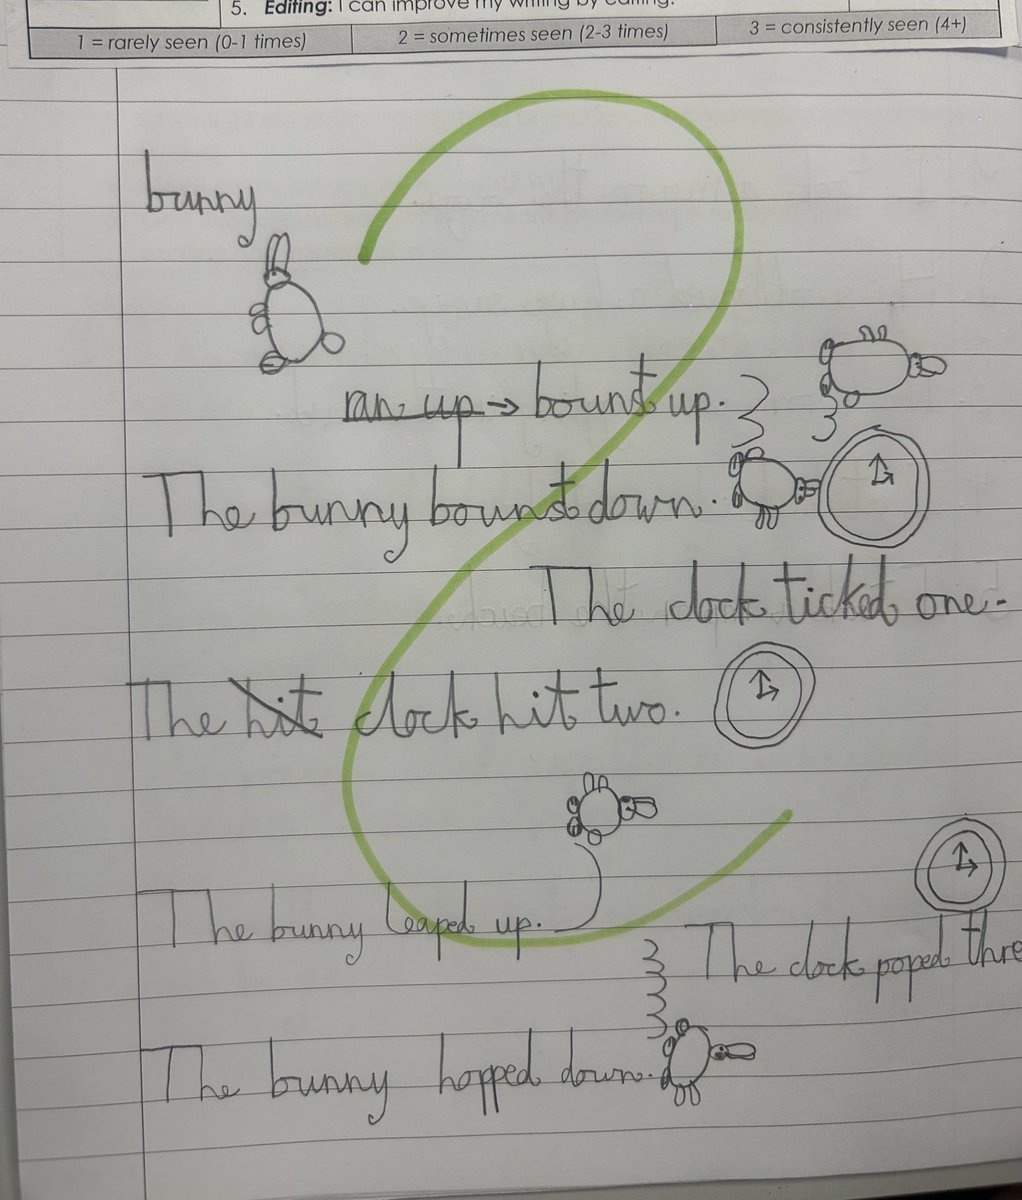 5. Editing: I can improve my writing by editing.
1 = rarely seen (0-1 times) 2 = sometimes seen (2-3 times) 3 = consistently seen (4+)
bunny
ran up → bounst up.
The bunny bounst down.
The clock ticked one.
The hit clock hit two.
The bunny leaped up.
The clock poped thre
The bunny hopped down.